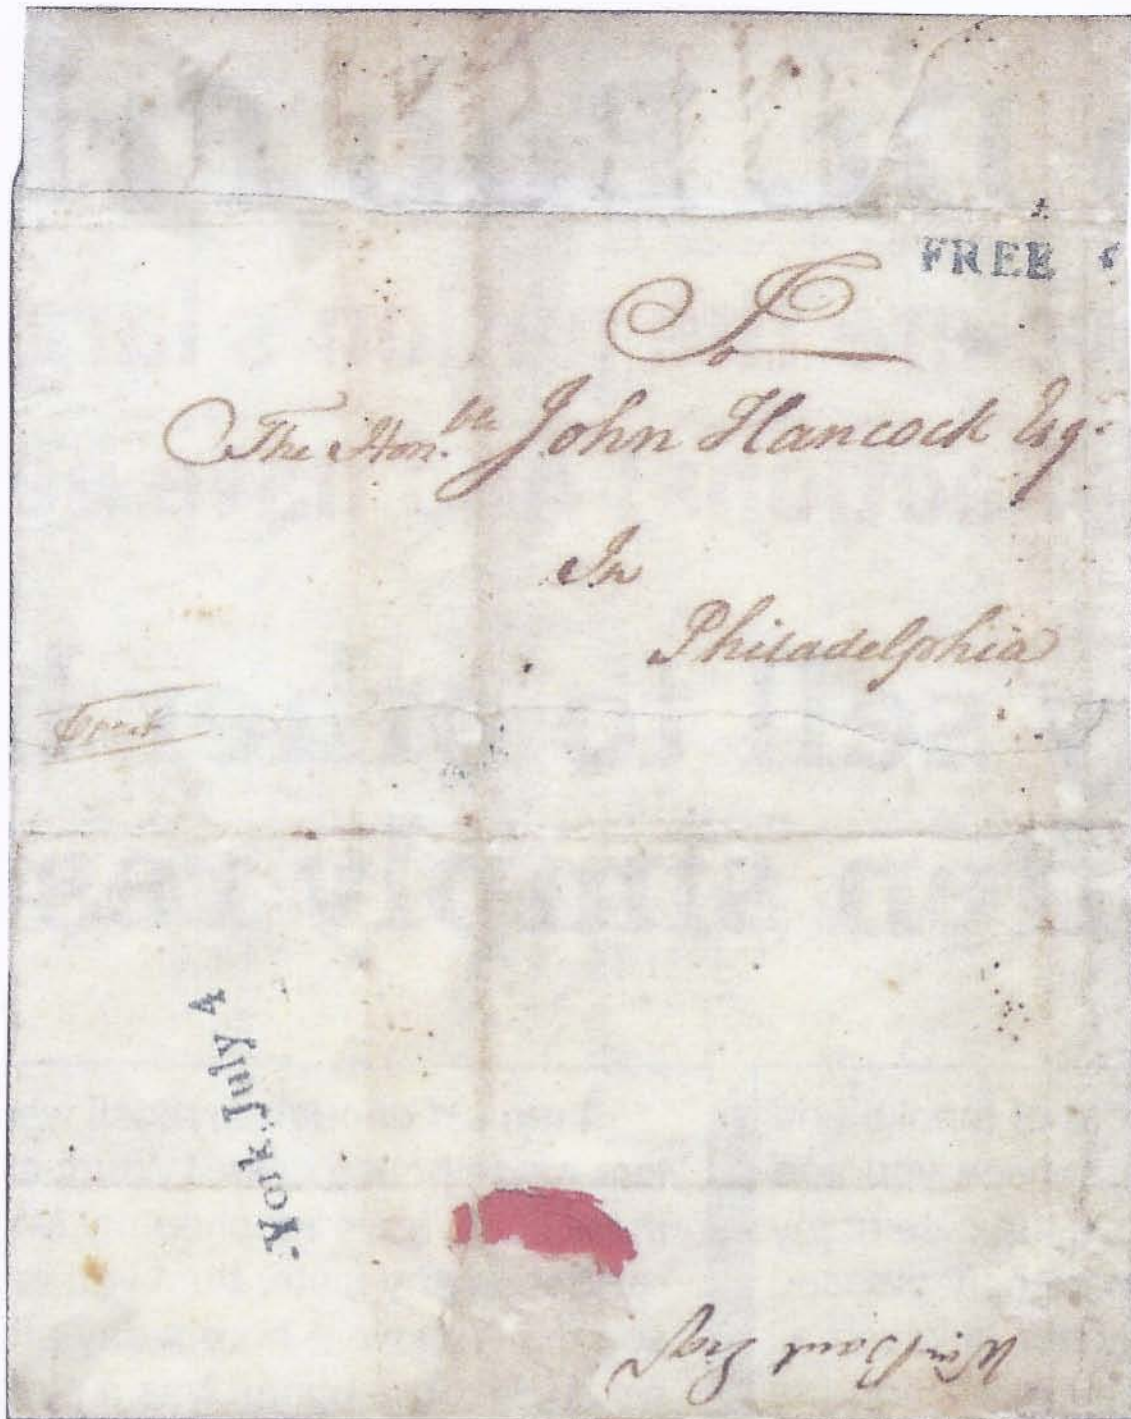 FREE
To
The Hon.ble John Hancock Esq.
In
Philadelphia
York, July 4